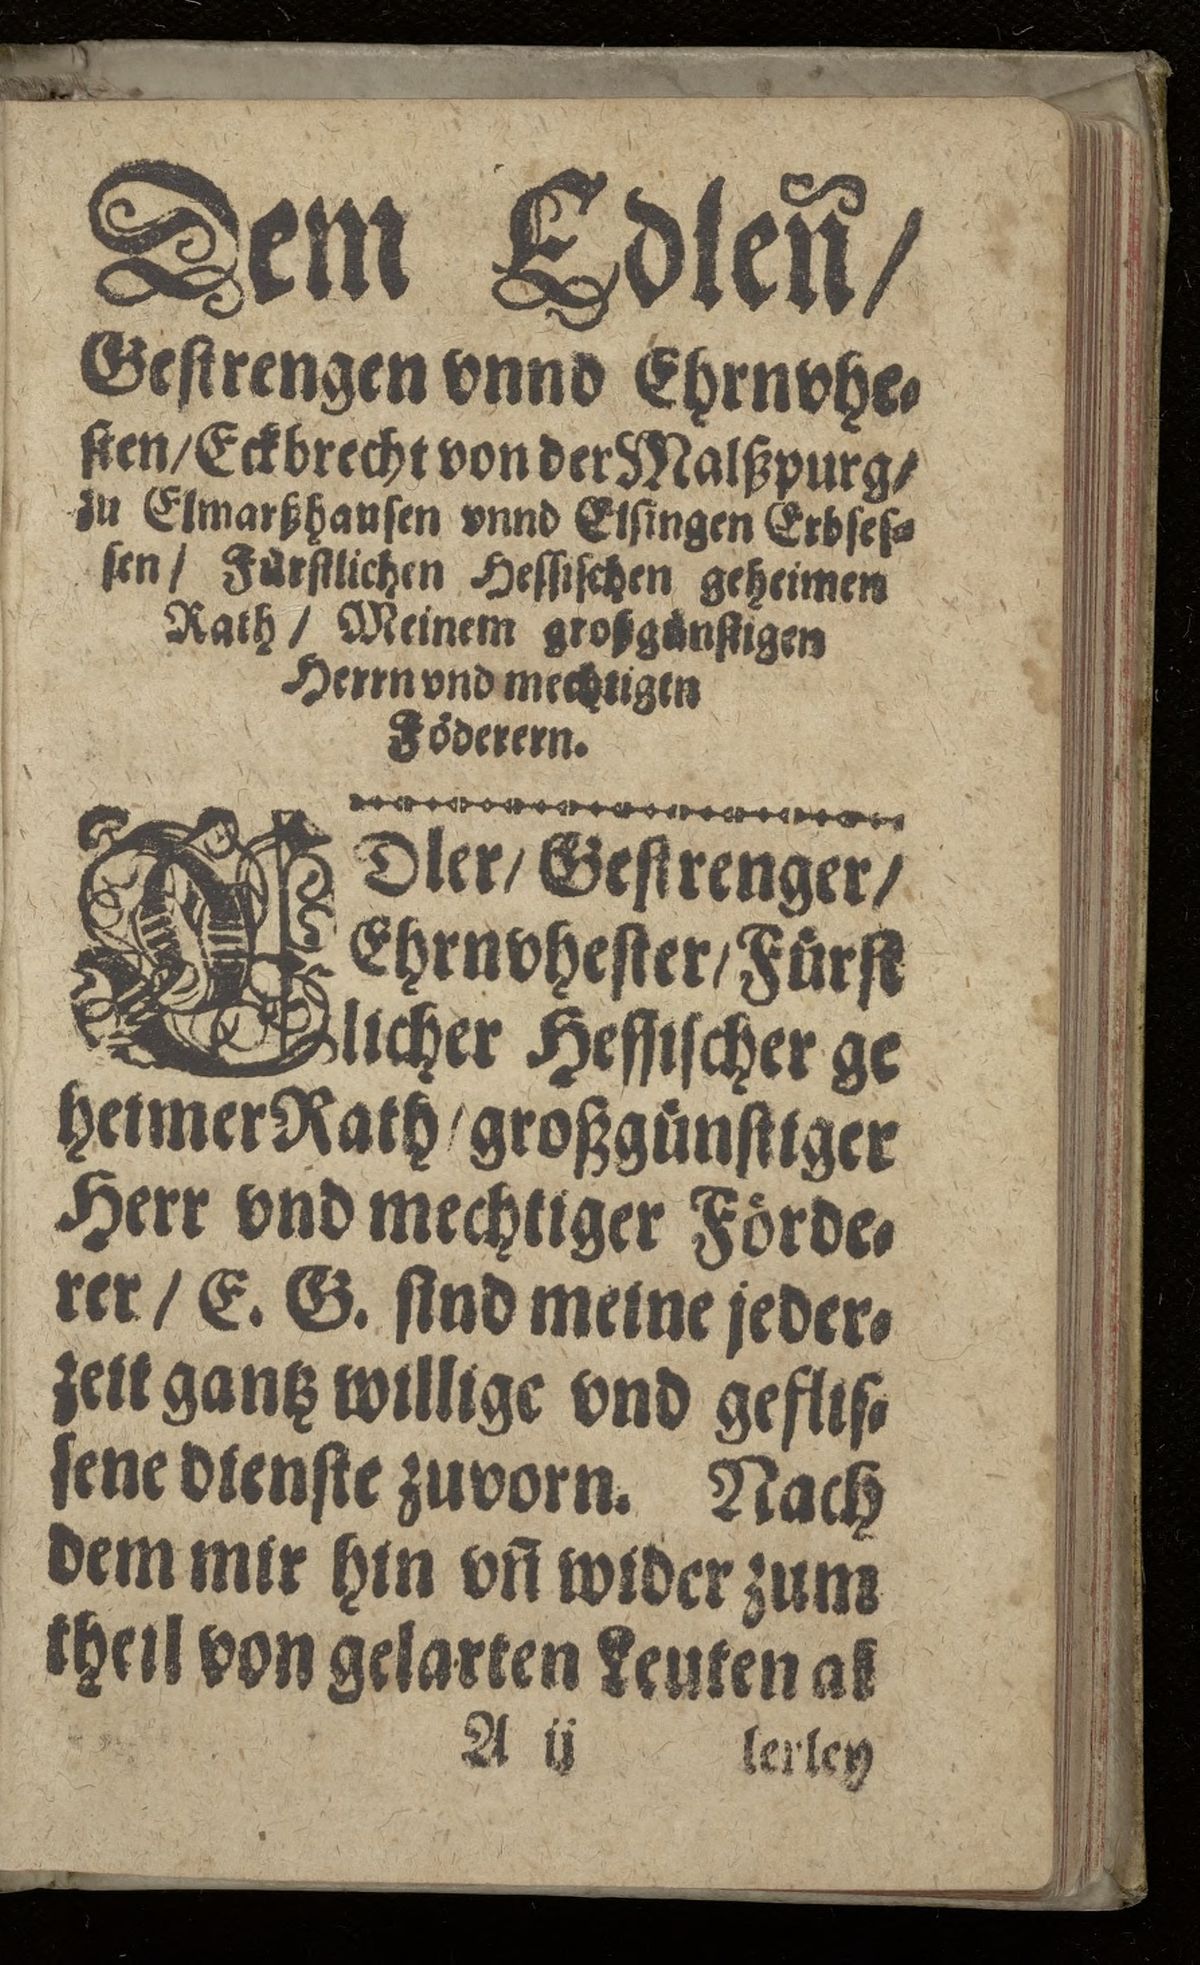 Dem Edlen̄/
Gestrengen vnnd Ehrnvhe-
sten/Eckbrecht von der Malßpurg/
zu Elmarßhausen vnnd Elsingen Erbses-
sen/ Fürstlichen Hessischen geheimen
Rath/ Meinem großgünstigen
Herrn vnd mechtigen
Föderern.
EDler/ Gestrenger/
Ehrnvhester/Fürst
licher Hessischer ge
heimer Rath/großgünstiger
Herr vnd mechtiger Förde-
rer/ E. G. sind meine jeder-
zeit gantz willige vnd geflis-
sene dienste zuvorn. Nach
dem mir hin vn̄ wider zum
theil von gelarten Leuten al
A ij lerley